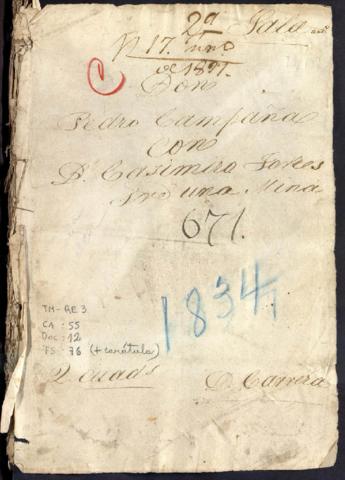 2ª Sala
N 17. Juno
de 1891.
Don
Pedro Campaña
con
D. Casimero Torres
Sre una Mina
671.
1834
TM-RE 3
CA : 55
Doc : 12
FS : 76 (+ carátula)
2 cuads
D. Carrera